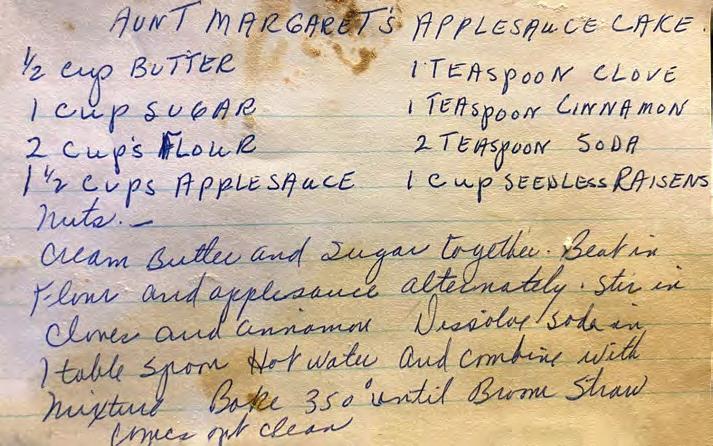 AUNT MARGARET'S APPLESAUCE CAKE.
½ cup BUTTER 1 TEASPOON CLOVE
1 cup SUGAR 1 TEASPOON CINNAMON
2 cup's FLOUR 2 TEASPOON SODA
1 ½ cups APPLESAUCE 1 cup SEEDLESS RAISENS
Nuts. —
Cream Butter and Sugar together. Beat in
Flour and applesauce alternately. Stir in
Cloves and cinnamon Dissolve soda in
1 table spoon Hot water and combine with
mixture Bake 350° until Broom Straw
comes out clean